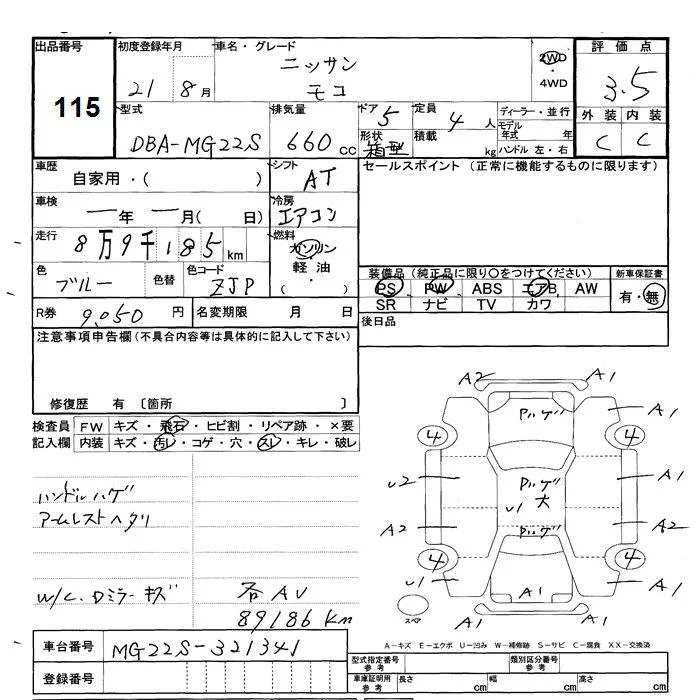 出品番号 初度登録年月 車名・グレード 評価点
115 21年 8月 ニッサン モコ 2WD ・4WD 3.5
外装 内装
C C
型式 排気量 ドア 定員 ディーラー・並行
DBA-MG22S 660cc 5 4人 モデル年式 年
形状 箱型 積載 kg ハンドル 左・右
車歴 シフト セールスポイント (正常に機能するものに限ります)
自家用・( ) AT
車検 冷房
一年 一月( 日) エアコン
走行 燃料
8万9千185km ガソリン 軽油 ・( )
色 色替 色コード
ブルー ZJP
装備品 (純正品に限り○をつけてください) 新車保証書
PS PW ABS エアB AW 有・無
SR ナビ TV カワ
R券 9,050円 名変期限 月 日 後日品
注意事項申告欄(不具合内容等は具体的に記入して下さい)
修復歴 有 〔箇所 〕
検査員 FW キズ・飛石・ヒビ割・リペア跡・×要
記入欄 内装 キズ・汚レ・コゲ・穴・スレ・キレ・破レ
ハンドルハゲ
アームレストヘタリ
W/C.Dミラーキズ 各AU
89186km
A2 A1
Pハゲ A1
4 4
U2 Pハゲ A1
U1 大
A2 Pハゲ A2
4 4
U1 A1 A1
スペア A1
A-キズ E-エクボ U-凹み W-補修跡 S-サビ C-腐食 XX-交換済
車台番号 MG22S-321341
登録番号
型式指定番号 参考 類別区分番号 参考
車庫証明用 参考 長さ cm 幅 cm 高さ cm